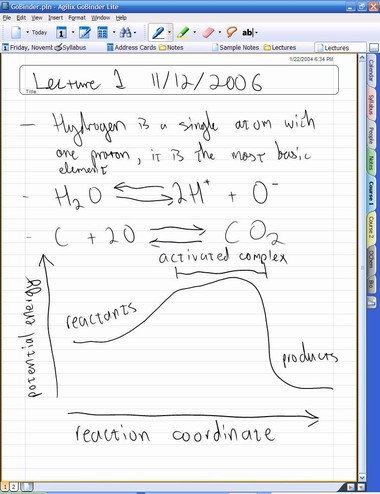 GoBinder.pln - Agilix GoBinder Lite
File Edit View Insert Format Window Help
Today
ab
Friday, Novemt
Syllabus
Address Cards
Notes
Sample Notes
Lectures
Lectures
1/22/2004 8:34 PM
Lecture 1 11/12/2006
Title
- Hydrogen is a single atom with
one proton, it is the most basic
element
- H2O ⇌ 2H+ + O-
- C + 2O ⇌ CO2
activated complex
potential energy
reactants
products
reaction coordinate
Calendar
Syllabus
People
Notes
Course 1
Course 2
OChem
Bio
1 2